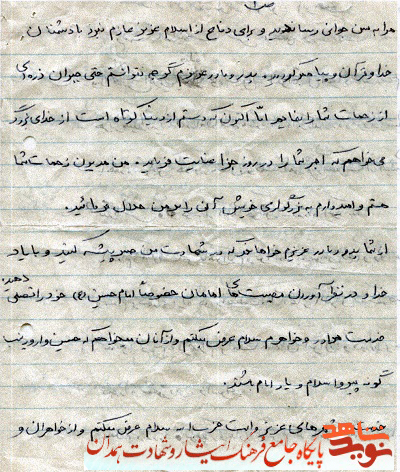 مرا به سن جوانی رساندید و برای دفاع از اسلام عزیز عازم نبرد با دشمنان
خدا و قرآن و پیامبر کردید. پدر و مادر عزیزم گرچه نتوانستم حتی جبران ذره‌ای
از زحمات شما را بنمایم امّا اکنون که دستم از دنیا کوتاه است از خدای بزرگ
می‌خواهم که اجر شما را در روز جزا عنایت فرماید. من مدیون زحمات شما
هستم و امیدوارم به بزرگواری خویش آن را بر من حلال فرمائید.
از شما پدر و مادر عزیزم خواهانم که در شهادت من صبر پیشه کنید و با یاد
خدا و در نظر آوردن مصیبت‌های امامان خصوصاً امام حسین (ع) خود را تسلی دهید.
خدمت برادر و خواهرم سلام عرض میکنم و از آنان میخواهم که حسین وار و زینب
گونه پیرو اسلام و یار امام باشند.
عزیز سلام عرض میکنم و از خواهران و
نوید شاهد
پایگاه جامع فرهنگ ایثار و شهادت همدان